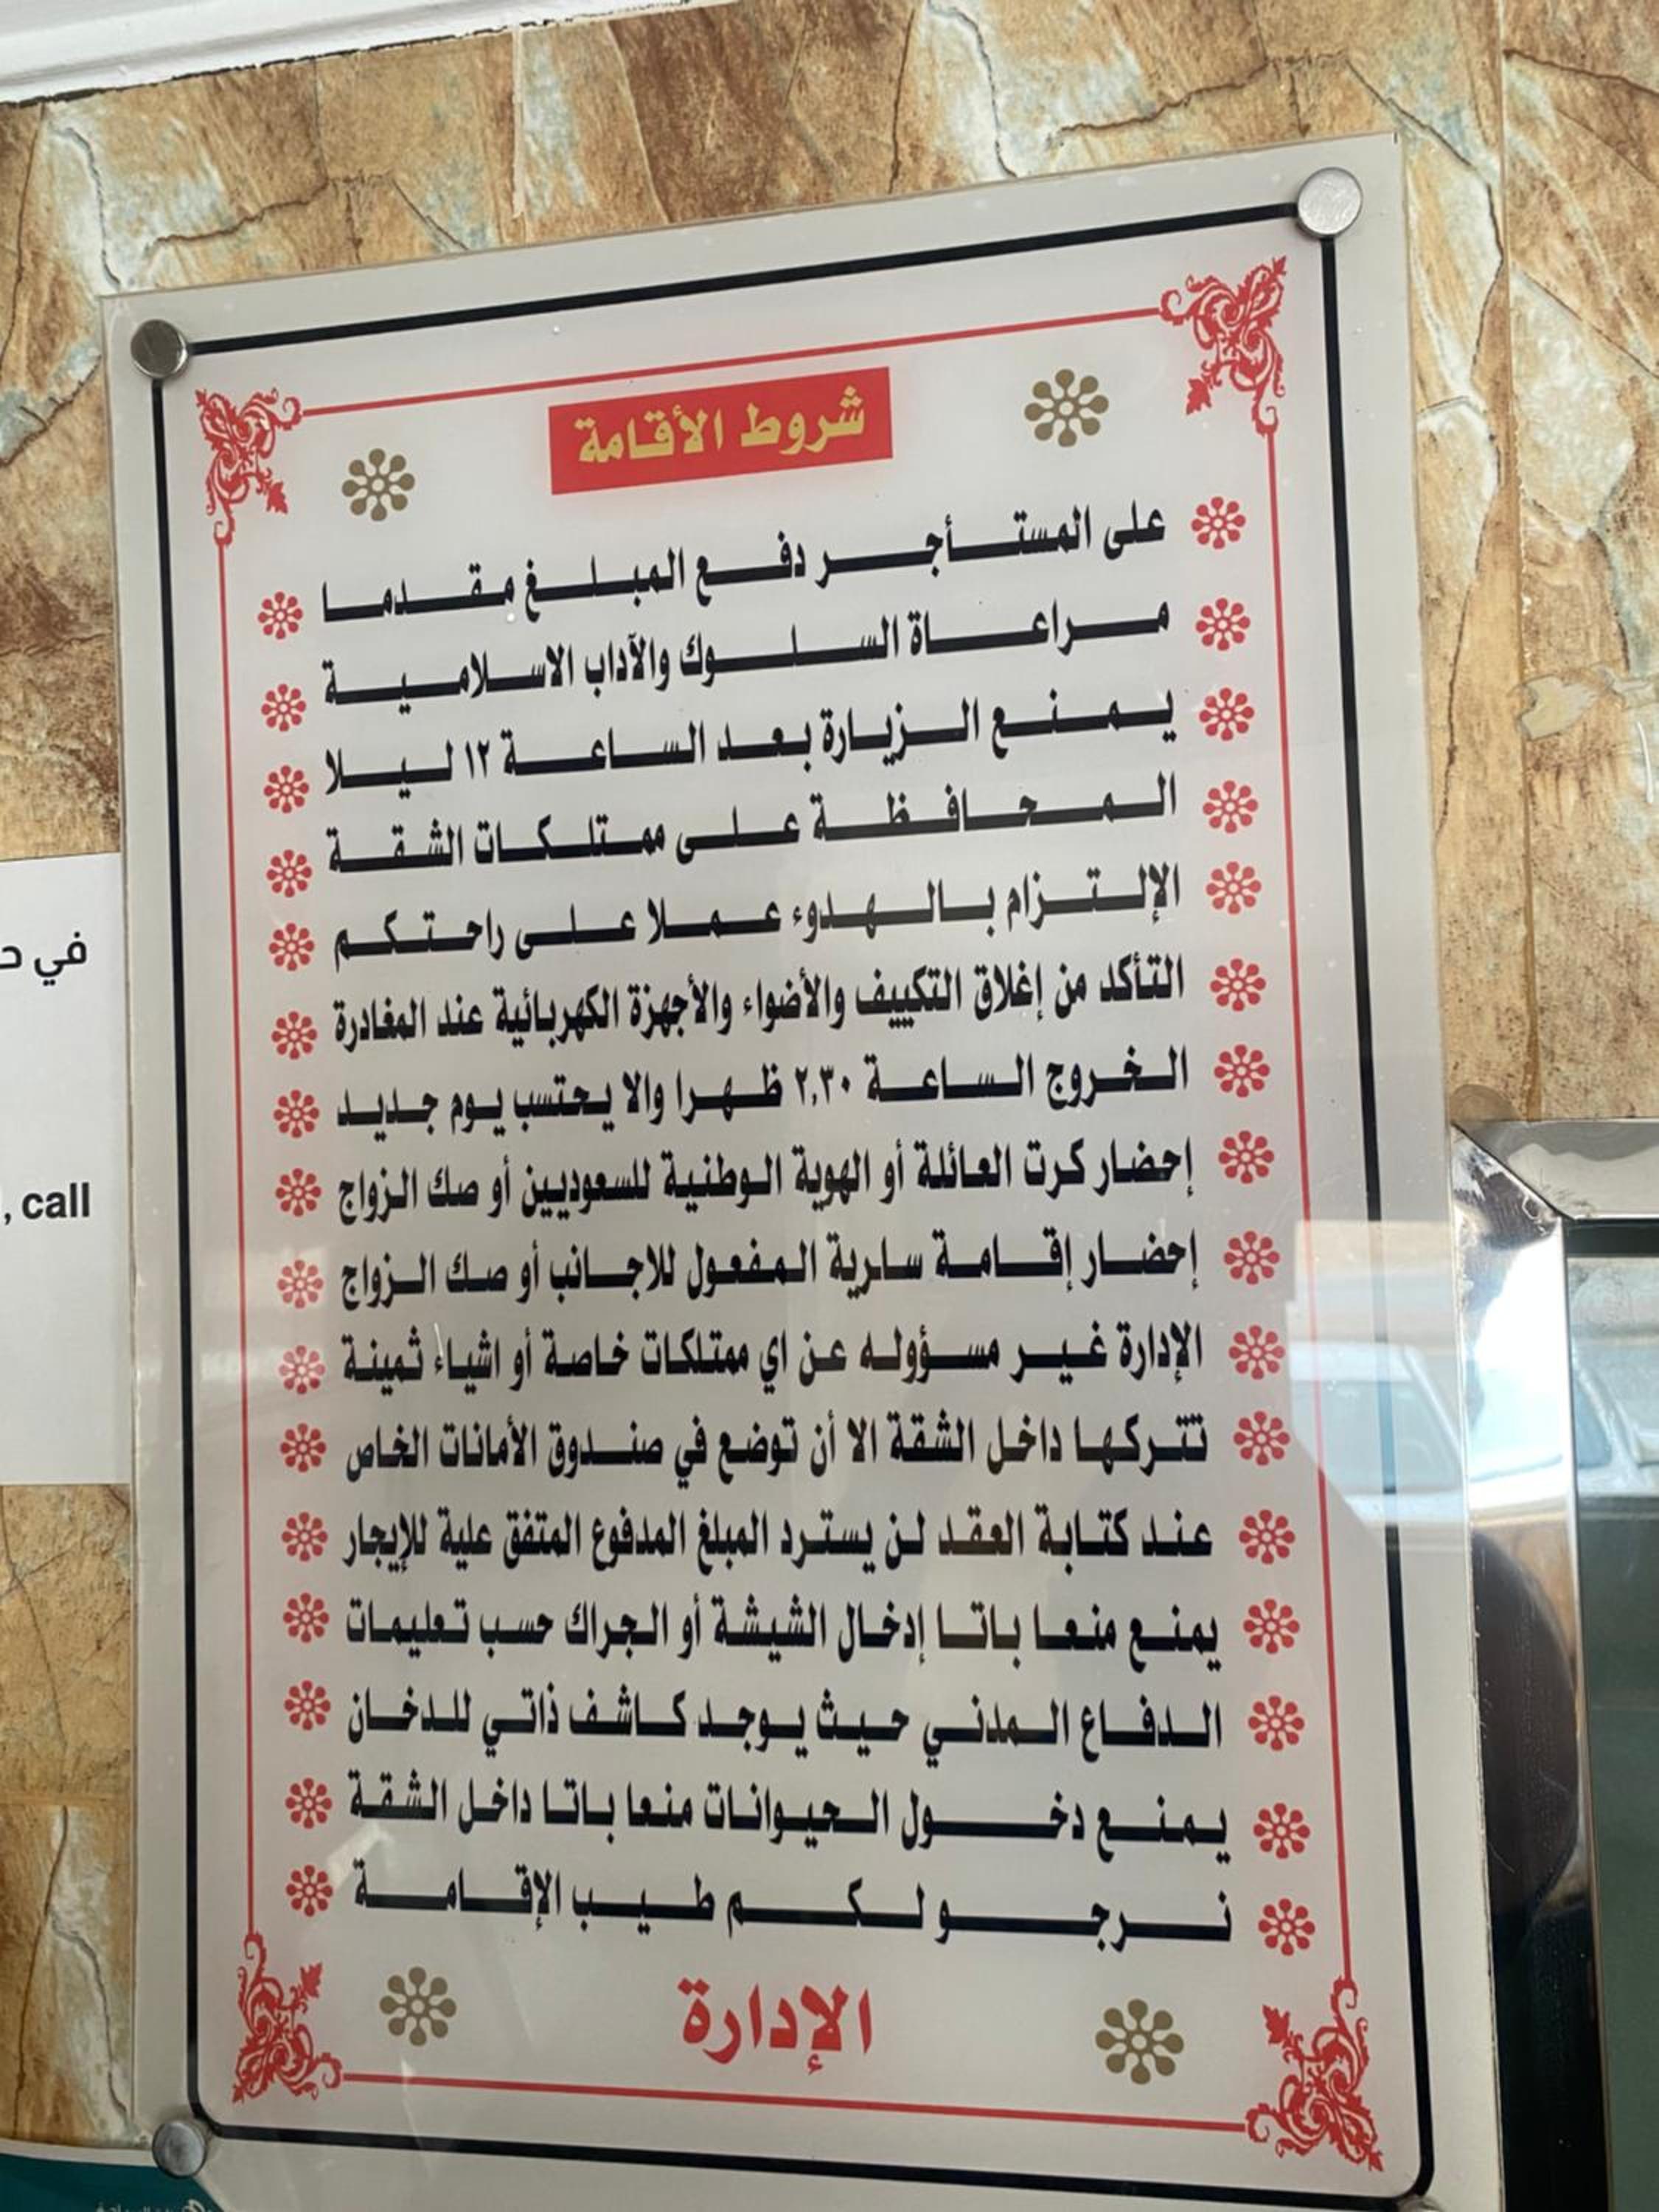 شروط الأقامة
على المستأجر دفع المبلغ مقدما
مراعاة السلوك والآداب الاسلامية
يمنع الزيارة بعد الساعة ١٢ ليلا
المحافظة على ممتلكات الشقة
الإلتزام بالهدوء عملا على راحتكم
التأكد من إغلاق التكييف والأضواء والأجهزة الكهربائية عند المغادرة
الخروج الساعة ٢,٣٠ ظهرا والا يحتسب يوم جديد
إحضار كرت العائلة أو الهوية الوطنية للسعوديين أو صك الزواج
إحضار إقامة سارية المفعول للاجانب أو صك الزواج
الإدارة غير مسؤوله عن اي ممتلكات خاصة أو اشياء ثمينة
تتركها داخل الشقة الا أن توضع في صندوق الأمانات الخاص
عند كتابة العقد لن يسترد المبلغ المدفوع المتفق علية للإيجار
يمنع منعا باتا إدخال الشيشة أو الجراك حسب تعليمات
الدفاع المدني حيث يوجد كاشف ذاتي للدخان
يمنع دخول الحيوانات منعا باتا داخل الشقة
نرجو لكم طيب الإقامة
الإدارة
في
, call